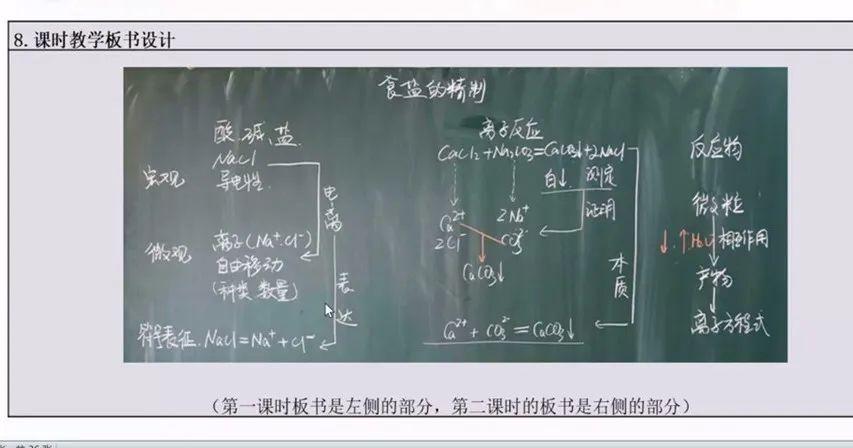 8. 课时教学板书设计
食盐的精制
酸、碱、盐
NaCl
导电性
宏观
电离
微观
离子(Na⁺ Cl⁻)
自由移动
(种类 数量)
表达
符号表征. NaCl=Na⁺+Cl⁻
离子反应
CaCl₂+Na₂CO₃=CaCO₃↓+2NaCl
白↓ 测定
证明
Ca²⁺ 2Na⁺
2Cl⁻ CO₃²⁻
CaCO₃↓
本质
Ca²⁺+CO₃²⁻=CaCO₃↓
反应物
微粒
↓ ↑ H₂O 相互作用
产物
离子方程式
(第一课时板书是左侧的部分，第二课时的板书是右侧的部分)